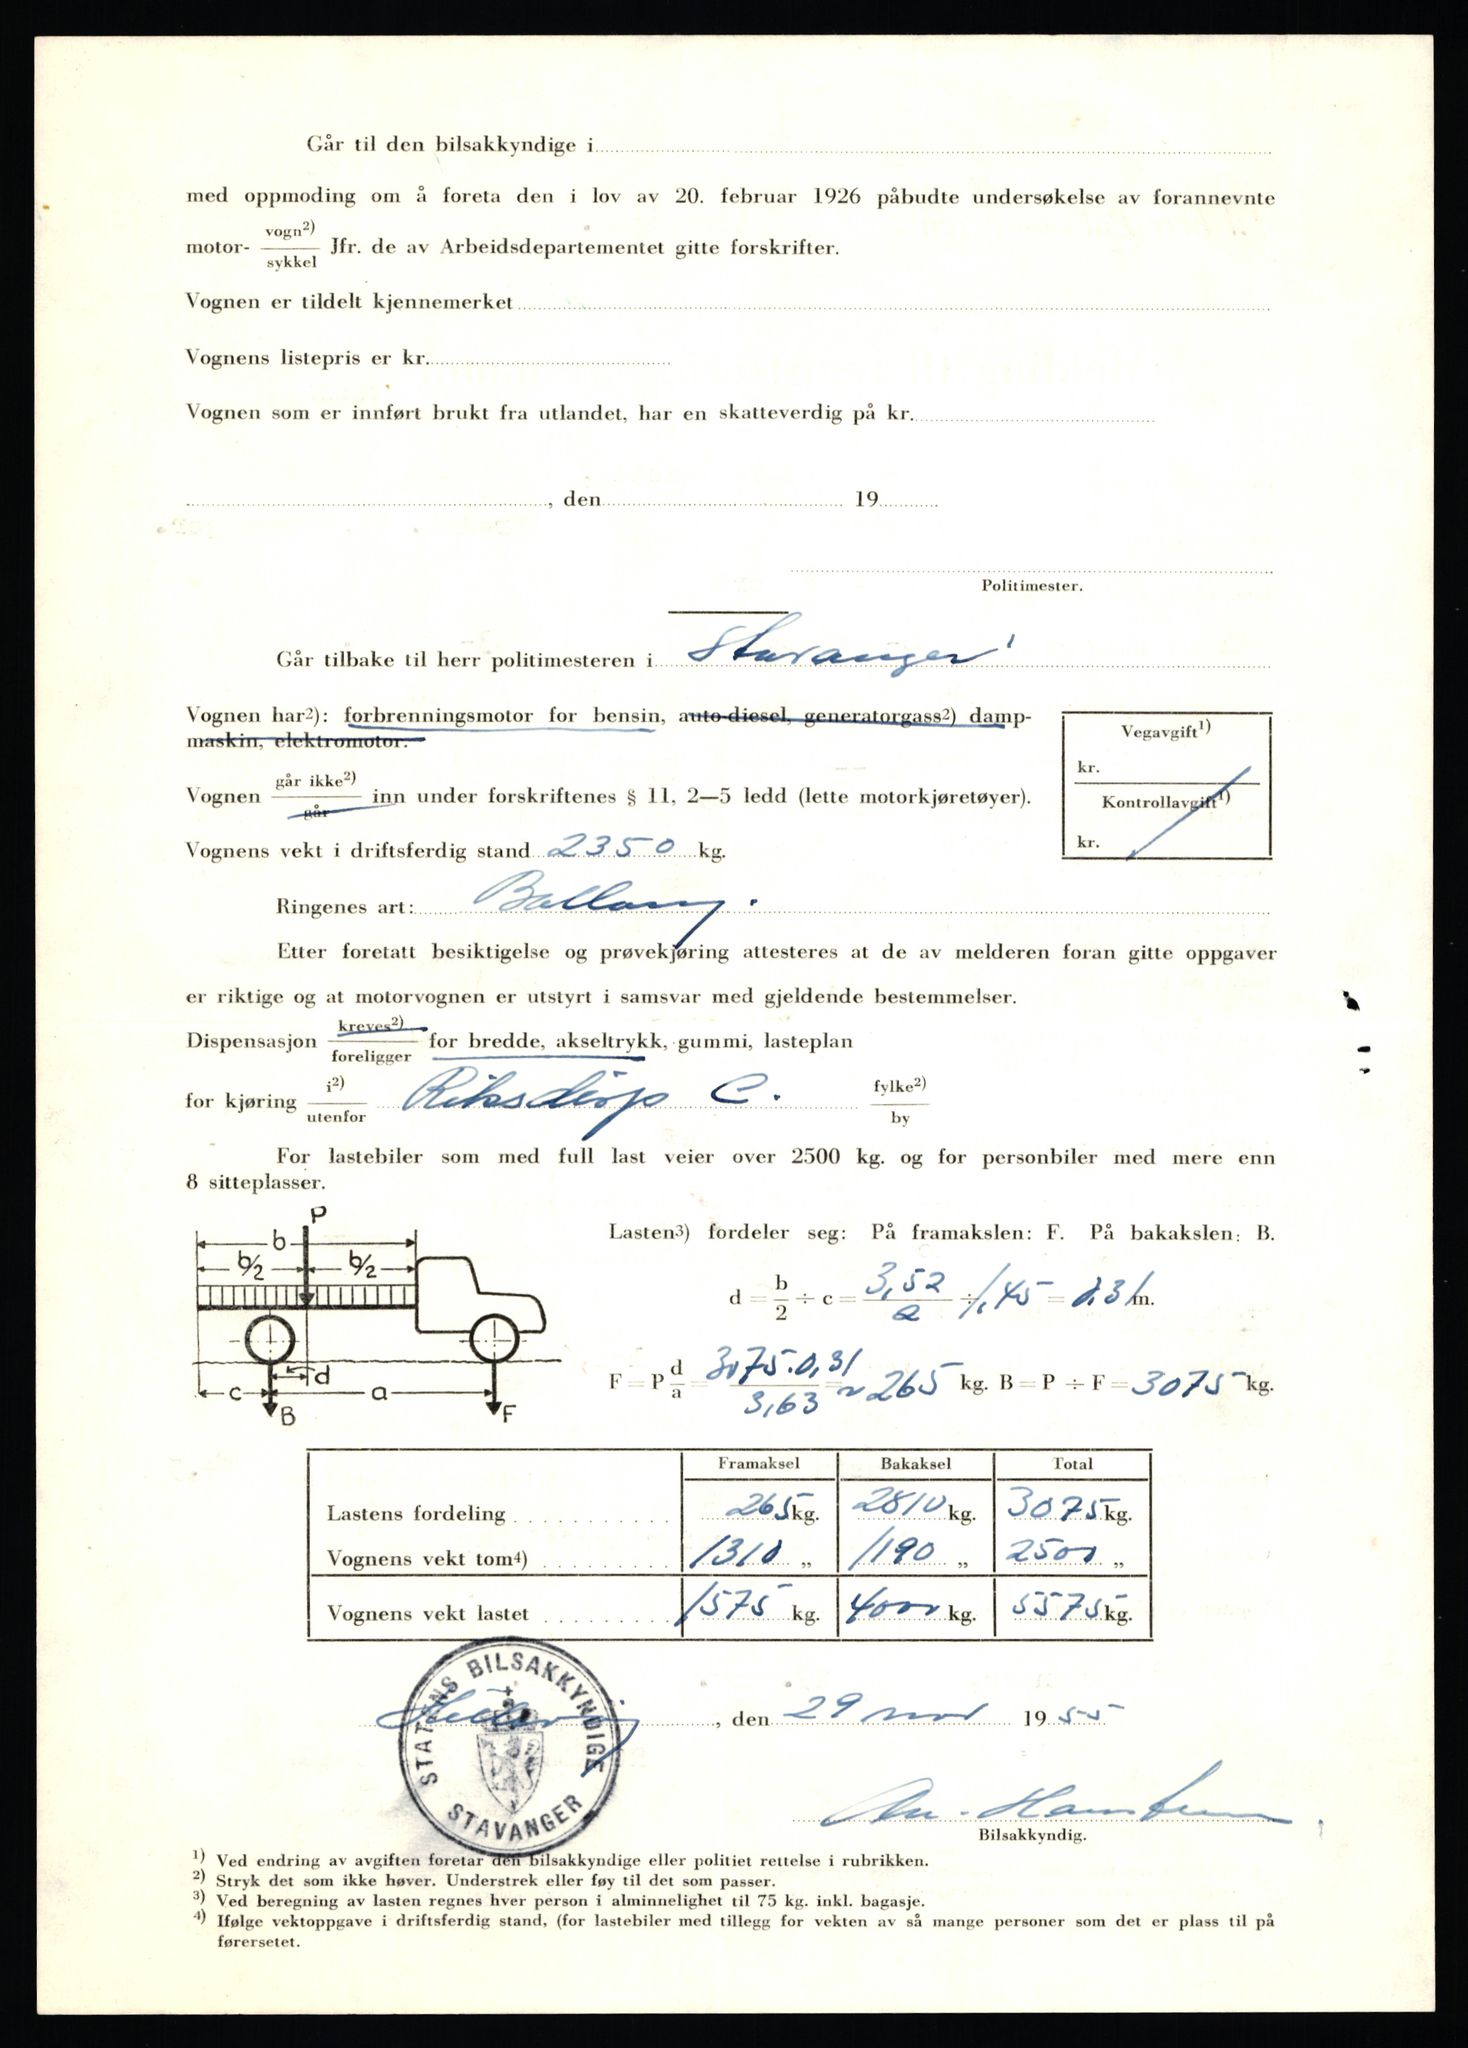 Går til den bilsakkyndige i
med oppmoding om å foreta den i lov av 20. februar 1926 påbudte undersøkelse av forannevnte
motor- vogn2) / sykkel Jfr. de av Arbeidsdepartementet gitte forskrifter.
Vognen er tildelt kjennemerket
Vognens listepris er kr.
Vognen som er innført brukt fra utlandet, har en skatteverdig på kr.
, den 19
Politimester.
Går tilbake til herr politimesteren i Stavanger
Vognen har2): forbrenningsmotor for bensin, auto-diesel, generatorgass2) damp-
maskin, elektromotor.
Vegavgift1)
kr.
Kontrollavgift1)
kr.
Vognen går ikke2) / går inn under forskriftenes § 11, 2—5 ledd (lette motorkjøretøyer).
Vognens vekt i driftsferdig stand 2350 kg.
Ringenes art: Ballong.
Etter foretatt besiktigelse og prøvekjøring attesteres at de av melderen foran gitte oppgaver
er riktige og at motorvognen er utstyrt i samsvar med gjeldende bestemmelser.
Dispensasjon kreves2) / foreligger for bredde, akseltrykk, gummi, lasteplan
for kjøring i2) / utenfor Riksdisp C. fylke2) / by
For lastebiler som med full last veier over 2500 kg. og for personbiler med mere enn
8 sitteplasser.
P
b
b/2 b/2
d
c a
B F
Lasten3) fordeler seg: På framakslen: F. På bakakslen: B.
d = b/2 ÷ c = 3,52/2 ÷ 1,45 = 0,31 m.
F = P d/a = 3075·0,31/3,63 = ~ 265 kg. B = P ÷ F = 3075 kg.
Framaksel Bakaksel Total
Lastens fordeling 265 kg. 2810 kg. 3075 kg.
Vognens vekt tom4) 1310 „ 1190 „ 2500 „
Vognens vekt lastet 1575 kg. 4000 kg. 5575 kg.
STATENS BILSAKKYNDIGE
STAVANGER
, den 29 nov 1955
Bilsakkyndig.
1) Ved endring av avgiften foretar den bilsakkyndige eller politiet rettelse i rubrikken.
2) Stryk det som ikke høver. Understrek eller føy til det som passer.
3) Ved beregning av lasten regnes hver person i alminnelighet til 75 kg. inkl. bagasje.
4) Ifølge vektoppgave i driftsferdig stand, (for lastebiler med tillegg for vekten av så mange personer som det er plass til på
førersetet.